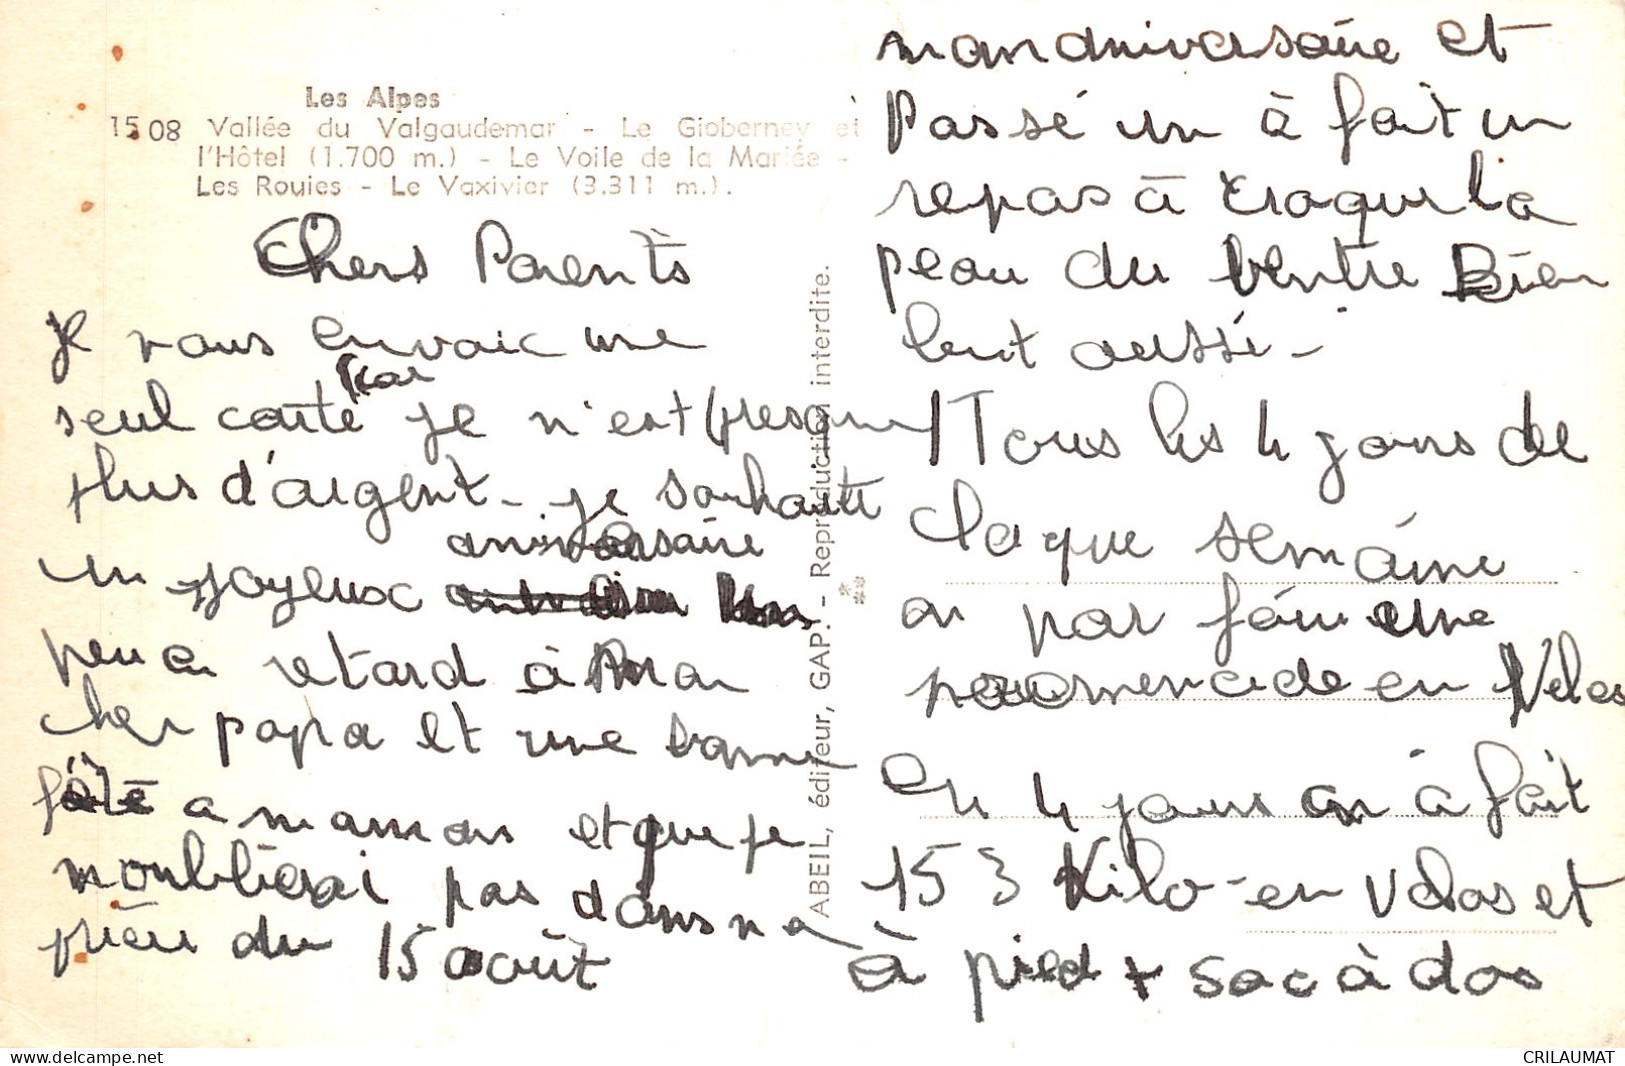 Les Alpes
15 08 Vallée du Valgaudemar - Le Gioberney et
l'Hôtel (1.700 m.) - Le Voile de la Mariée -
Les Rouies - Le Vaxivier (3.311 m.).
Chers Parents
je vous envoic une
seul carte car je n'est presque
plus d'argent - je souhaite
un joyeux anniversaire
peu en retard à Mon
cher papa et une bonne
fête a maman et que je
n'oublierai pas dans ma
prière du 15 août
ABEIL, éditeur, GAP. - Reproduction interdite.
mon aniversaire et
Passé on à fait un
repas à craquer la
peau du Ventre Bien
but aussi -
Tous les 4 jours de
chaque semaine
on par faire une
promenade en Velos
En 4 jours on à fait
153 Kilo - en Velos et
à pied + sac à dos
delcampe.net
CRILAUMAT